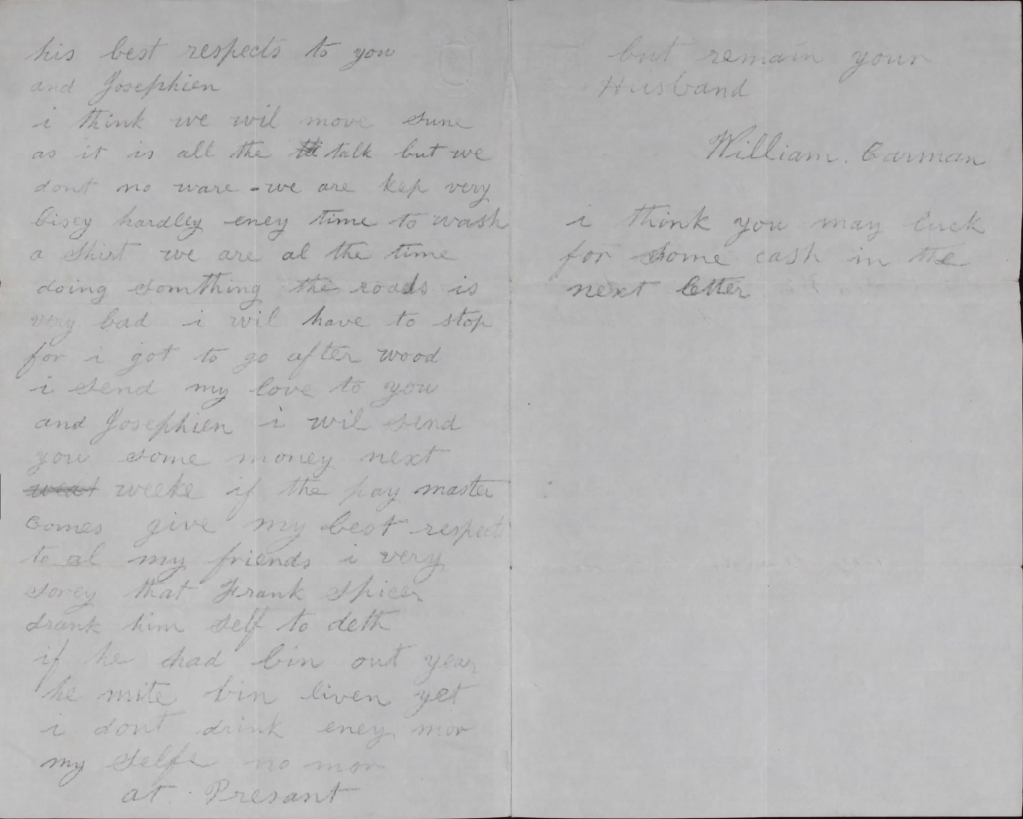 his best respects to you
and Josephien
i think we wil move sune
as it is all the talk but we
dont no ware - we are kep very
bisey hardley eney time to wash
a shirt we are al the time
doing somthing the roads is
very bad i wil have to stop
for i got to go after wood
i send my love to you
and Josephien i wil send
you some money next
weeke if the pay master
Comes give my best respect
to al my friends i very
sorey that Frank Spicer
drank him self to deth
if he had bin out year
he mite bin liven yet
i dont drink eney mor
my selfe no mor
at Presant
but remain your
Husband
William. Carman
i think you may luck
for some cash in the
next letter